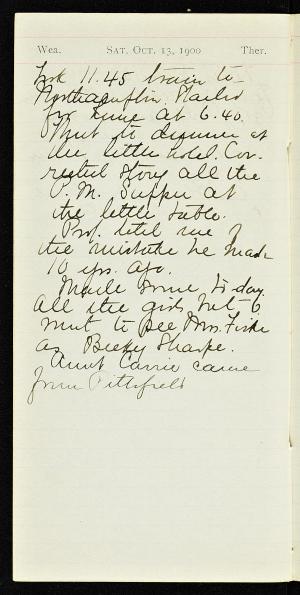 Wea. SAT. OCT. 13, 1900 Ther.
Took 11.45 train to
Northampton. Started
for home at 6.40.
Went to dinner at
the little hotel. Cor-
rected story all the
P. M. Supper at
the little table.
Prof. told me of
the mistake he made
10 yrs. ago.
Maude home to day.
All the girls but 6
went to see Mrs. Fiske
as Becky Sharpe.
Aunt Carrie came
from Pittsfield